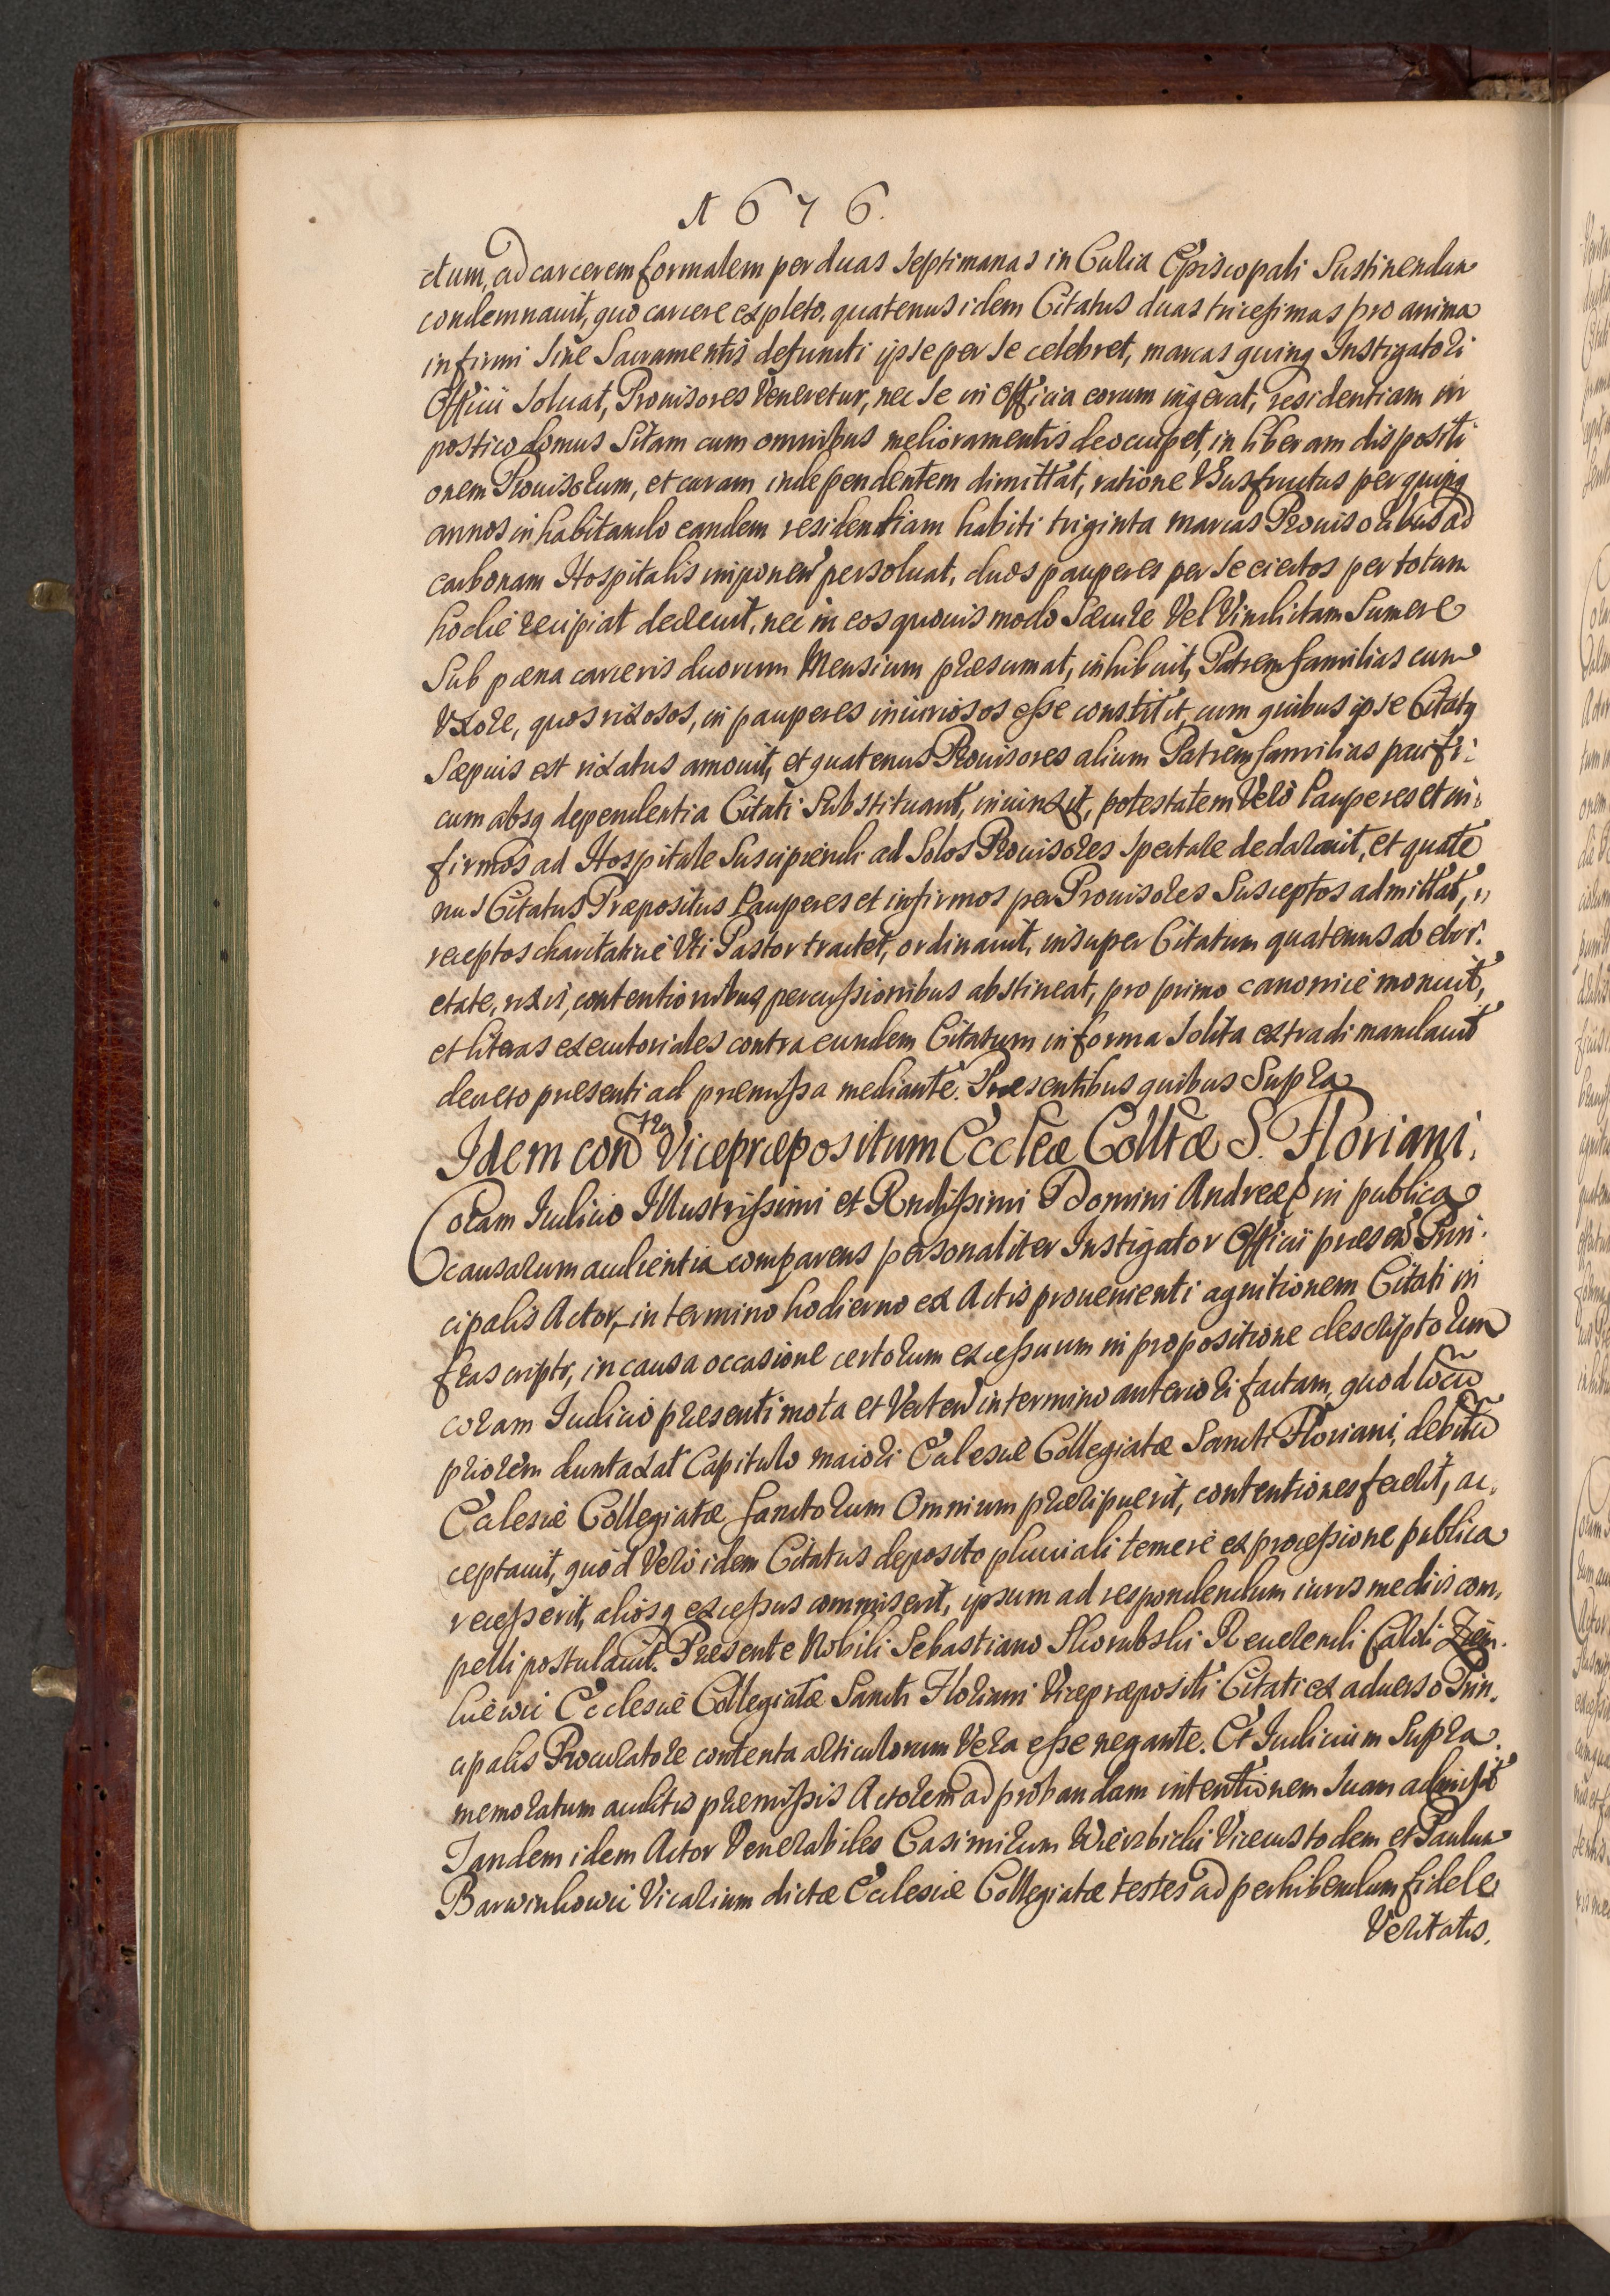 1676.
ctum, ad carcerem formalem per duas Septimanas in Curia Episcopali Sustinendum
condemnauit, quo carcere expleto, quatenus idem Citatus duas tricessimas pro anima
infirmi sine Sacramentis defuncti ipse per se celebret, marcas quinq Instigatori
Officii soluat, Prouisores Veneretur, nec se in Officia eorum ingerat, residentiam in
postico domus Sitam cum omnibus melioramentis deocupet, in liberam dispositi
onem Prouisorum, et curam independentem dimittat, ratione Vsusfructus per quinq
annos inhabitando eandem residentiam habiti triginta marcas Prouisoribus ad
carbonam Hospitalis imponen persoluat, duos pauperes per se eiectos per totum
hodie recipiat decreuit, nec in eos quouis modo Sæuire Vel Vindictam Sumere
Sub pœna carceris duorum Mensium præsumat, inhibuit, Patremfamilias cum
Vxore, quos rixosos, in pauperes iniuriosos esse constitit, cum quibus ipse Citatq
Sæpius est rixatus amouit, et quatenus Prouisores alium Patremfamilias pacifi:
cum absq dependentia Citati Substituant, iniunxit, potestatem Verò Pauperes et in:
firmos ad Hospitale Suscipiendi ad Solos Prouisores Spectare declarauit, et quate
nus Citatus Præpositus Pauperes et infirmos per Prouisores Susceptos admittat,
receptos charitatiuè Vti Pastor tractet, ordinauit, insuper Citatum quatenus ab ebri:
etate, rixis, contentionibus, percussionibus abstineat, pro primo canonicè monuit,
et literas executoriales contra eundem Citatum in forma Solita extradi mandauit
decreto presenti ad premissa mediante. Præsentibus quibus Supra
Idem contra Vicepræpositum Eccleæ Colltæ S. Floriani.
Coram Iudicio Illustrissimi et Rndissimi Domini Andreæ in publica
causarum audientia comparens personaliter Instigator Officii præsen Prin:
cipalis Actor, in termino hodierno ex Actis prouenienti agnitionem Citati in
frascripti, in causa occasione certorum excessuum in propositione descriptorum
coram Iudicio præsenti mota et Verten in termino anteriori factam, quod locu
priorem duntaxat Capitulo maiori Ecclesiæ Collegiatæ Sancti Floriani, debitu
Ecclesiæ Collegiatæ Sanctorum Omnium præripuerit, contentiones fecerit, ac,
ceptauit, quòd Verò idem Citatus deposito pluuiali temerè ex processione publica
recesserit, aliosq excessus commiserit, ipsum ad respondendum iuris mediis com,
pelli postulauit. Præsente Nobili Sebastiano Skorubski Reuerendi Caroli
Ecclesiæ Collegiatæ Sancti Floriani Vicepræpositi Citati ex aduerso Prin,
cipalis Procuratore contenta articulorum Vera esse negante. Et Iudicium Supra
memoratum auditis præmissis Actorem ad probandam intentionem suam admisit
Tandem idem Actor Venerabiles Casimirum Wierzbicki Vicecustodem et Paulum
Barwinkowic Vicarium dictæ Ecclesiæ Collegiatæ testes ad perhibendum fidele
Veritatis.